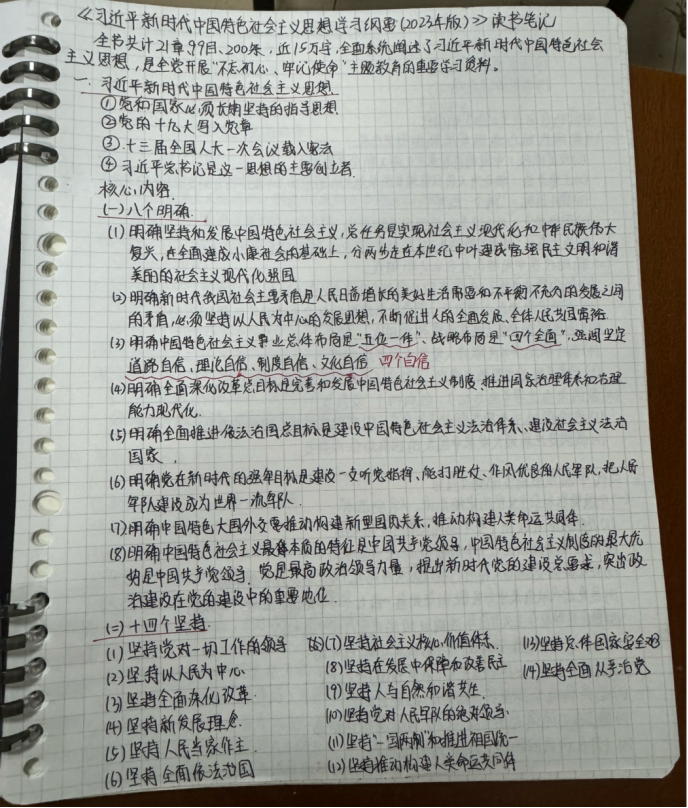 《习近平新时代中国特色社会主义思想学习纲要(2023年版)》读书笔记
全书共计21章99目、200条，近15万字，全面系统阐述了习近平新时代中国特色社会
主义思想，是全党开展"不忘初心、牢记使命"主题教育的重要学习资料。
一、习近平新时代中国特色社会主义思想
①党和国家必须长期坚持的指导思想
②党的十九大写入党章
③十三届全国人大一次会议载入宪法
④习近平总书记是这一思想的主要创立者.
核心内容
(一)八个明确.
(1)明确坚持和发展中国特色社会主义，总任务是实现社会主义现代化和中华民族伟大
复兴，在全面建成小康社会的基础上，分两步走在本世纪中叶建成富强民主文明和谐
美丽的社会主义现代化强国
(2)明确新时代我国社会主要矛盾是人民日益增长的美好生活需要和不平衡不充分的发展之间
的矛盾，必须坚持以人民为中心的发展思想，不断促进人的全面发展、全体人民共同富裕
(3)明确中国特色社会主义事业总体布局是"五位一体"、战略布局是"四个全面"，强调坚定
道路自信、理论自信、制度自信、文化自信 四个自信
(4)明确全面深化改革总目标是完善和发展中国特色社会主义制度、推进国家治理体系和治理
能力现代化.
(5)明确全面推进依法治国总目标是建设中国特色社会主义法治体系、建设社会主义法治
国家.
(6)明确党在新时代的强军目标是建设一支听党指挥、能打胜仗、作风优良的人民军队，把人民
军队建设成为世界一流军队.
(7)明确中国特色大国外交要推动构建新型国际关系，推动构建人类命运共同体.
(8)明确中国特色社会主义最本质的特征是中国共产党领导，中国特色社会主义制度的最大优
势是中国共产党领导. 党是最高政治领导力量，提出新时代党的建设总要求，突出政
治建设在党的建设中的重要地位.
(二)十四个坚持.
(1)坚持党对一切工作的领导
(2)坚持以人民为中心
(3)坚持全面深化改革.
(4)坚持新发展理念.
(5)坚持人民当家作主.
(6)坚持全面依法治国
(7)坚持社会主义核心价值体系.
(8)坚持在发展中保障和改善民生
(9)坚持人与自然和谐共生.
(10)坚持党对人民军队的绝对领导.
(11)坚持"一国两制"和推进祖国统一
(12)坚持推动构建人类命运共同体
(13)坚持总体国家安全观
(14)坚持全面从严治党